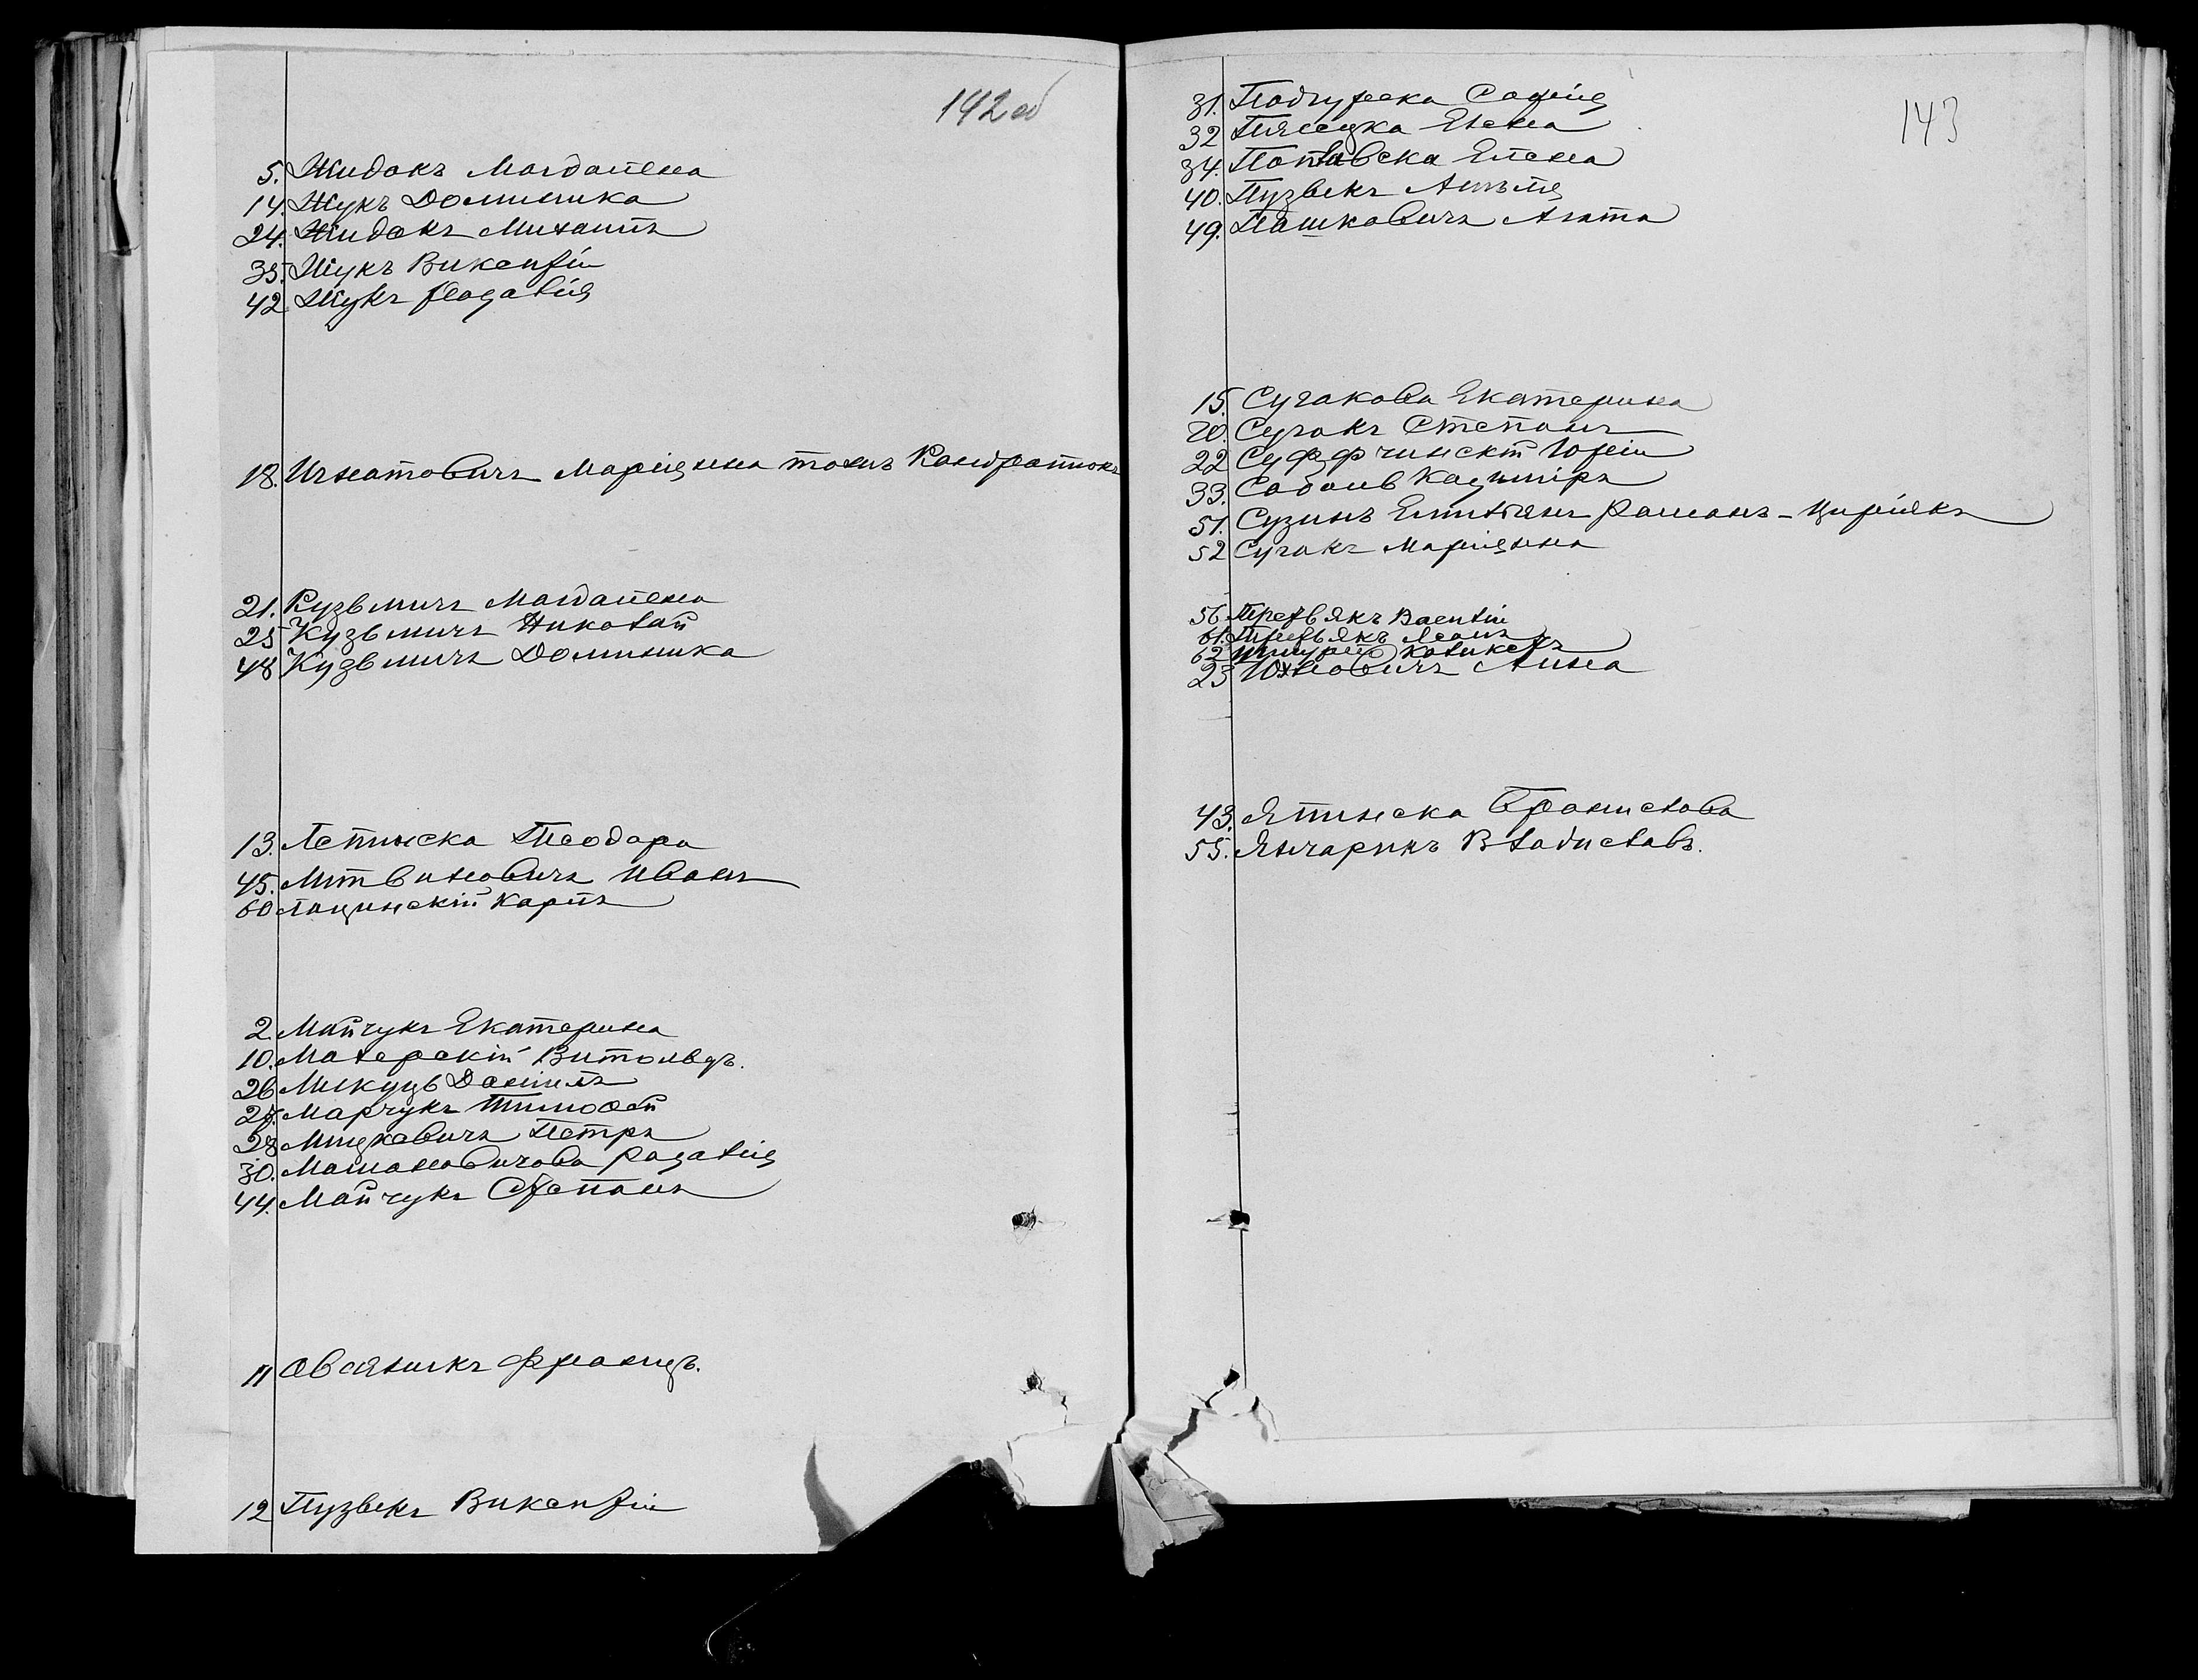 142 об
5. Жидокъ Магдалена
14. Жукъ Доминика
24. Жидокъ Михаилъ
35. Жукъ Викентiи
42. Жукъ Розалiя
18. Игнатовичъ Марiянна тожъ Кондратюкъ
21. Кузьмичъ Магдалена
25 Кузьмичъ Николай
48 Кузьмичъ Доминика
13. Лепинска Теодора
45. Литвиновичъ Иванъ
60 Лащинскiй Карлъ
2. Майчукъ Екатерина
10. Малерскiй Витольдъ.
26 Микуць Данiилъ
27. Марчукъ Тимофей
28 Мицкевичъ Петръ
30. Машановичова Розалiя
44. Майчукъ Степанъ
11 Овсяникъ Францъ.
12 Пузвекъ Викентiи
143
31. Подгурска Софiя
32 Пясецка Елена
34. Поплавска Елена
40. Пузвекъ
49. Пашковичъ Агата
15. Сучакова Екатерина
20. Сучокъ Степанъ
22 Суффчинскiй Юрiи
33. Соболь Казимiръ
51. Сузинъ Емилiянъ Романъ - Цирiякъ
52 Сучокъ Марiянна
56 Третьякъ Василiи
61. Третьякъ Леонъ
62 Каликстъ
23 Юхновичъ Анна
43. Ялинска Бронислова
55. Янчарикъ Владиславъ.